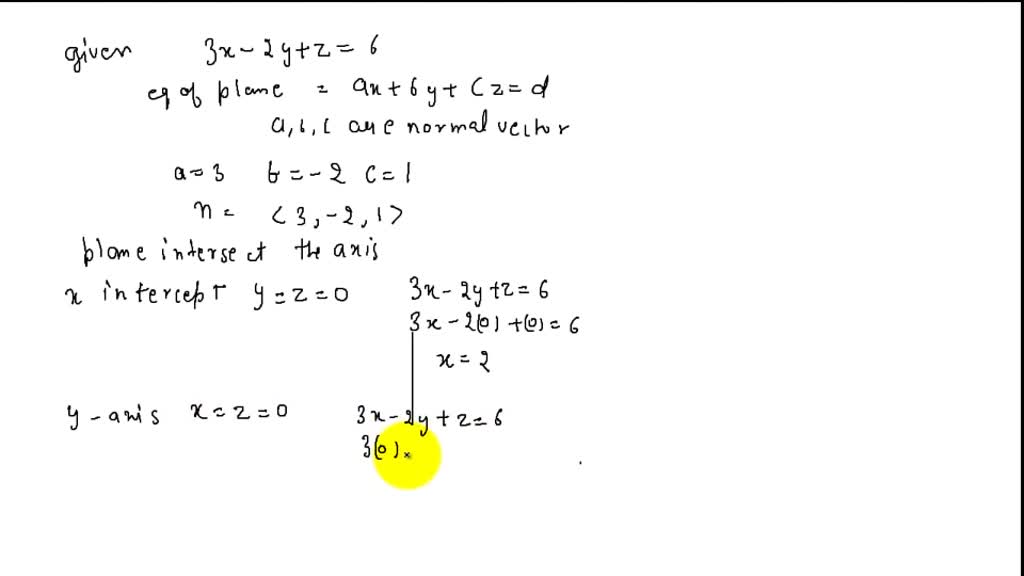 given 3x - 2y + z = 6
eq of plane = ax + by + cz = d
a, b, c are normal vector
a = 3 b = -2 c = 1
n = < 3, -2, 1 >
plane intersect the axis
x intercept y = z = 0 3x - 2y + z = 6
3x - 2(0) + (0) = 6
x = 2
y - axis x = z = 0 3x - 2y + z = 6
3(0)